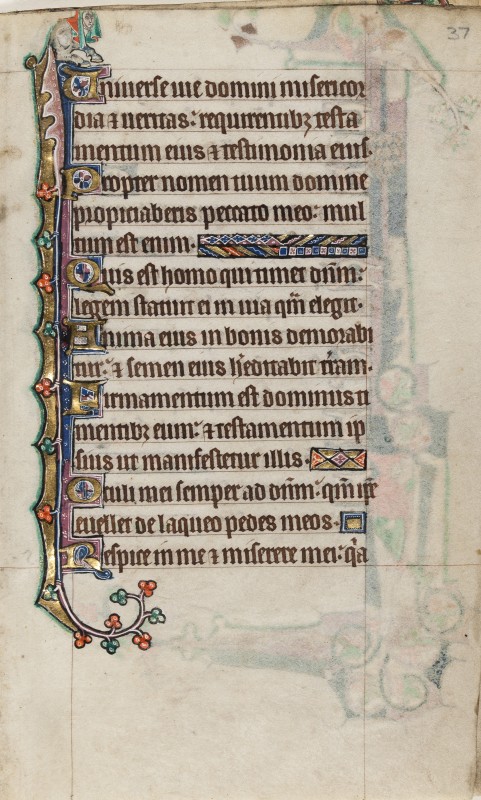 37
Universe vie domini misericor
dia ⁊ veritas: requirentibꝫ testa
mentum eius ⁊ testimonia eius.
Propter nomen tuum domine
propiciaberis peccato meo: mul
tum est enim.
Quis est homo qui timet dñm:
legem statuit ei in uia qm̃ elegit.
Anima eius in bonis demorabi
tur: ⁊ semen eius h̃editabit tr̃am.
Firmamentum est dominus ti
mentibꝫ eum: ⁊ testamentum ip
sius ut manifestetur illis.
Oculi mei semper ad dñm: qm̃ ip̃e
euellet de laqueo pedes meos.
Respice in me ⁊ miserere mei: q̃a